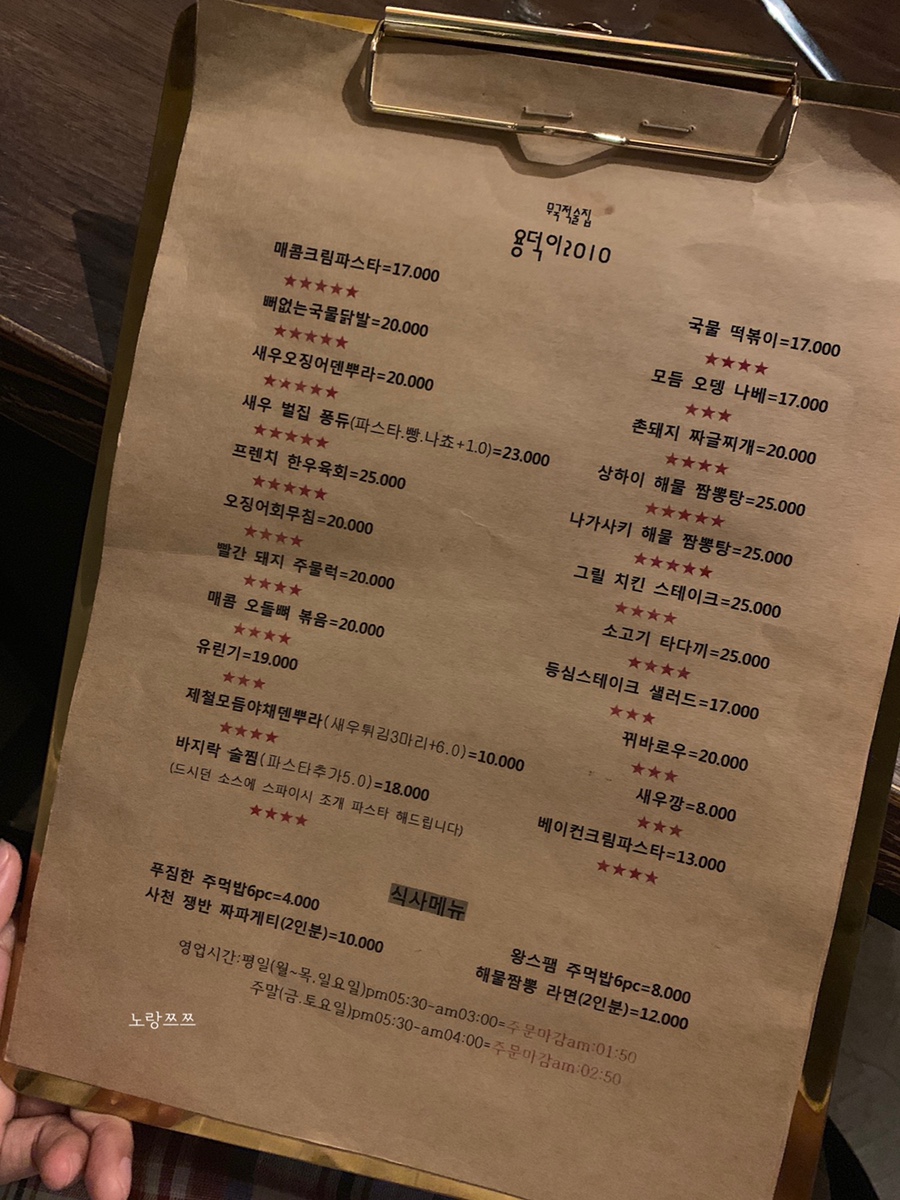 무국적술집
용덕이2010
매콤크림파스타=17.000
★★★★★
뼈없는국물닭발=20.000
★★★★★
새우오징어덴뿌라=20.000
★★★★★
새우 벌집 퐁듀(파스타.빵.나쵸+1.0)=23.000
★★★★★
프렌치 한우육회=25.000
★★★★★
오징어회무침=20.000
★★★★
빨간 돼지 주물럭=20.000
★★★★
매콤 오돌뼈 볶음=20.000
★★★★
유린기=19.000
★★★
제철모듬야채덴뿌라(새우튀김3마리+6.0)=10.000
★★★★
바지락 술찜(파스타추가5.0)=18.000
(드시던 소스에 스파이시 조개 파스타 해드립니다)
★★★★
국물 떡볶이=17.000
★★★★
모듬 오뎅 나베=17.000
★★★
촌돼지 짜글찌개=20.000
★★★★
상하이 해물 짬뽕탕=25.000
★★★★★
나가사키 해물 짬뽕탕=25.000
★★★★★
그릴 치킨 스테이크=25.000
★★★★
소고기 타다끼=25.000
★★★★
등심스테이크 샐러드=17.000
★★★
꿔바로우=20.000
★★★
새우깡=8.000
★★★
베이컨크림파스타=13.000
★★★★
식사메뉴
푸짐한 주먹밥6pc=4.000
사천 쟁반 짜파게티(2인분)=10.000
왕스팸 주먹밥6pc=8.000
해물짬뽕 라면(2인분)=12.000
영업시간:평일(월~목.일요일)pm05:30-am03:00=주문마감am:01:50
주말(금.토요일)pm05:30-am04:00=주문마감am:02:50
노랑쯔쯔